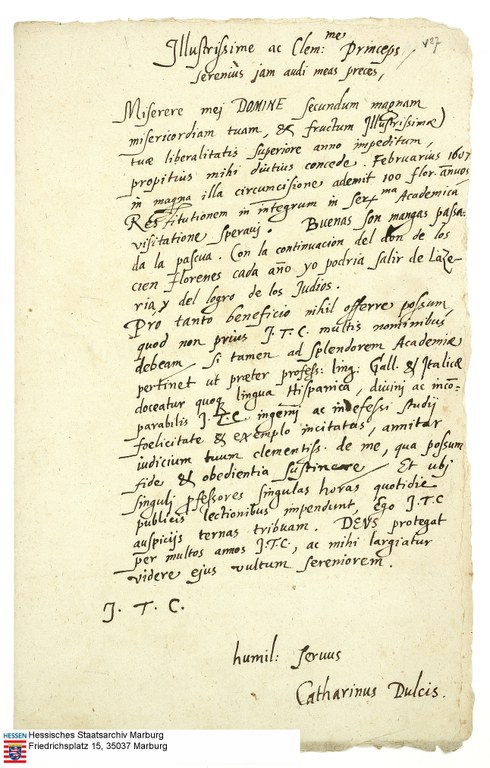 127
Illustrissime ac Clem:me Princeps,
serenius jam audi meas preces,
Miserere mej DOMINE secundum magnam
misericordiam tuam, & fructum Illustrissimæ
tuæ liberalitatis superiore anno impeditum,
propitius mihi diutius concede. Februarius 1607
in magna illa circumcisione ademit 100 flor. ānuos
Restitutionem in integrum in ser.ma Academica
visitatione speravj. Buenas son mangas passa-
da la pascua. Con la continuacion del don de los
cien Florenes cada año yo podria salir de Laze-
ria, y del logro de los Judios.
Pro tanto beneficio nihil offerre possum,
quod non prius J.T.C. multis nominibus
debeam. si tamen ad splendorem Academiæ
pertinet ut præter profess: ling: Gall. & Italicæ
doceatur quoq lingua Hispanica, divini ac incō-
parabilis J.T.C. ingenij ac indefessi studij
foelicitate & exemplo incitatus, annitar
iudicium tuum clementiss. de me, qua possum
fide & obedientia sustinere. Et ubj
singulj pfessores singulas horas quotidie
publicis lectionibus impendunt, Ego J.T.C
auspicijs ternas tribuam. DEVS protegat
per multos annos J.T.C., ac mihi largiatur
videre ejus vultum sereniorem.
J. T. C.
humil: servus
Catharinus Dulcis.
HESSEN Hessisches Staatsarchiv Marburg
Friedrichsplatz 15, 35037 Marburg